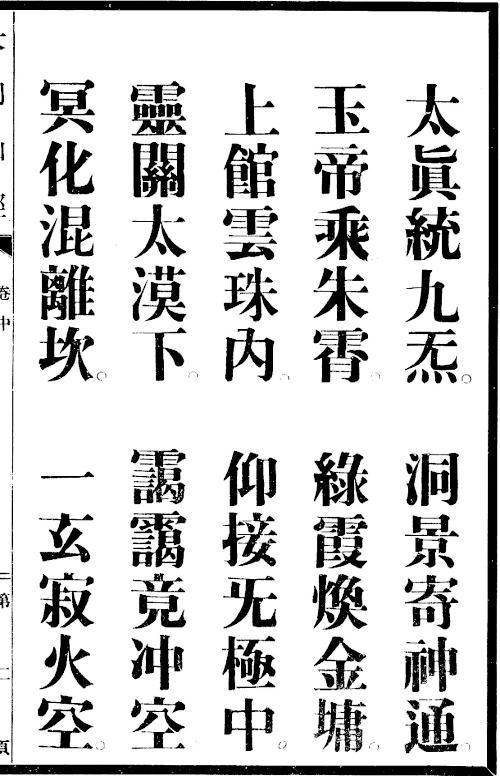 太眞統九炁。洞景寄神通。
玉帝乘朱霄。綠霞煥金墉。
上館雲珠內。仰接无極中。
靈關太漠下。靄靄竟冲空。
冥化混離坎。一玄寂火空。
卷中 第 頁